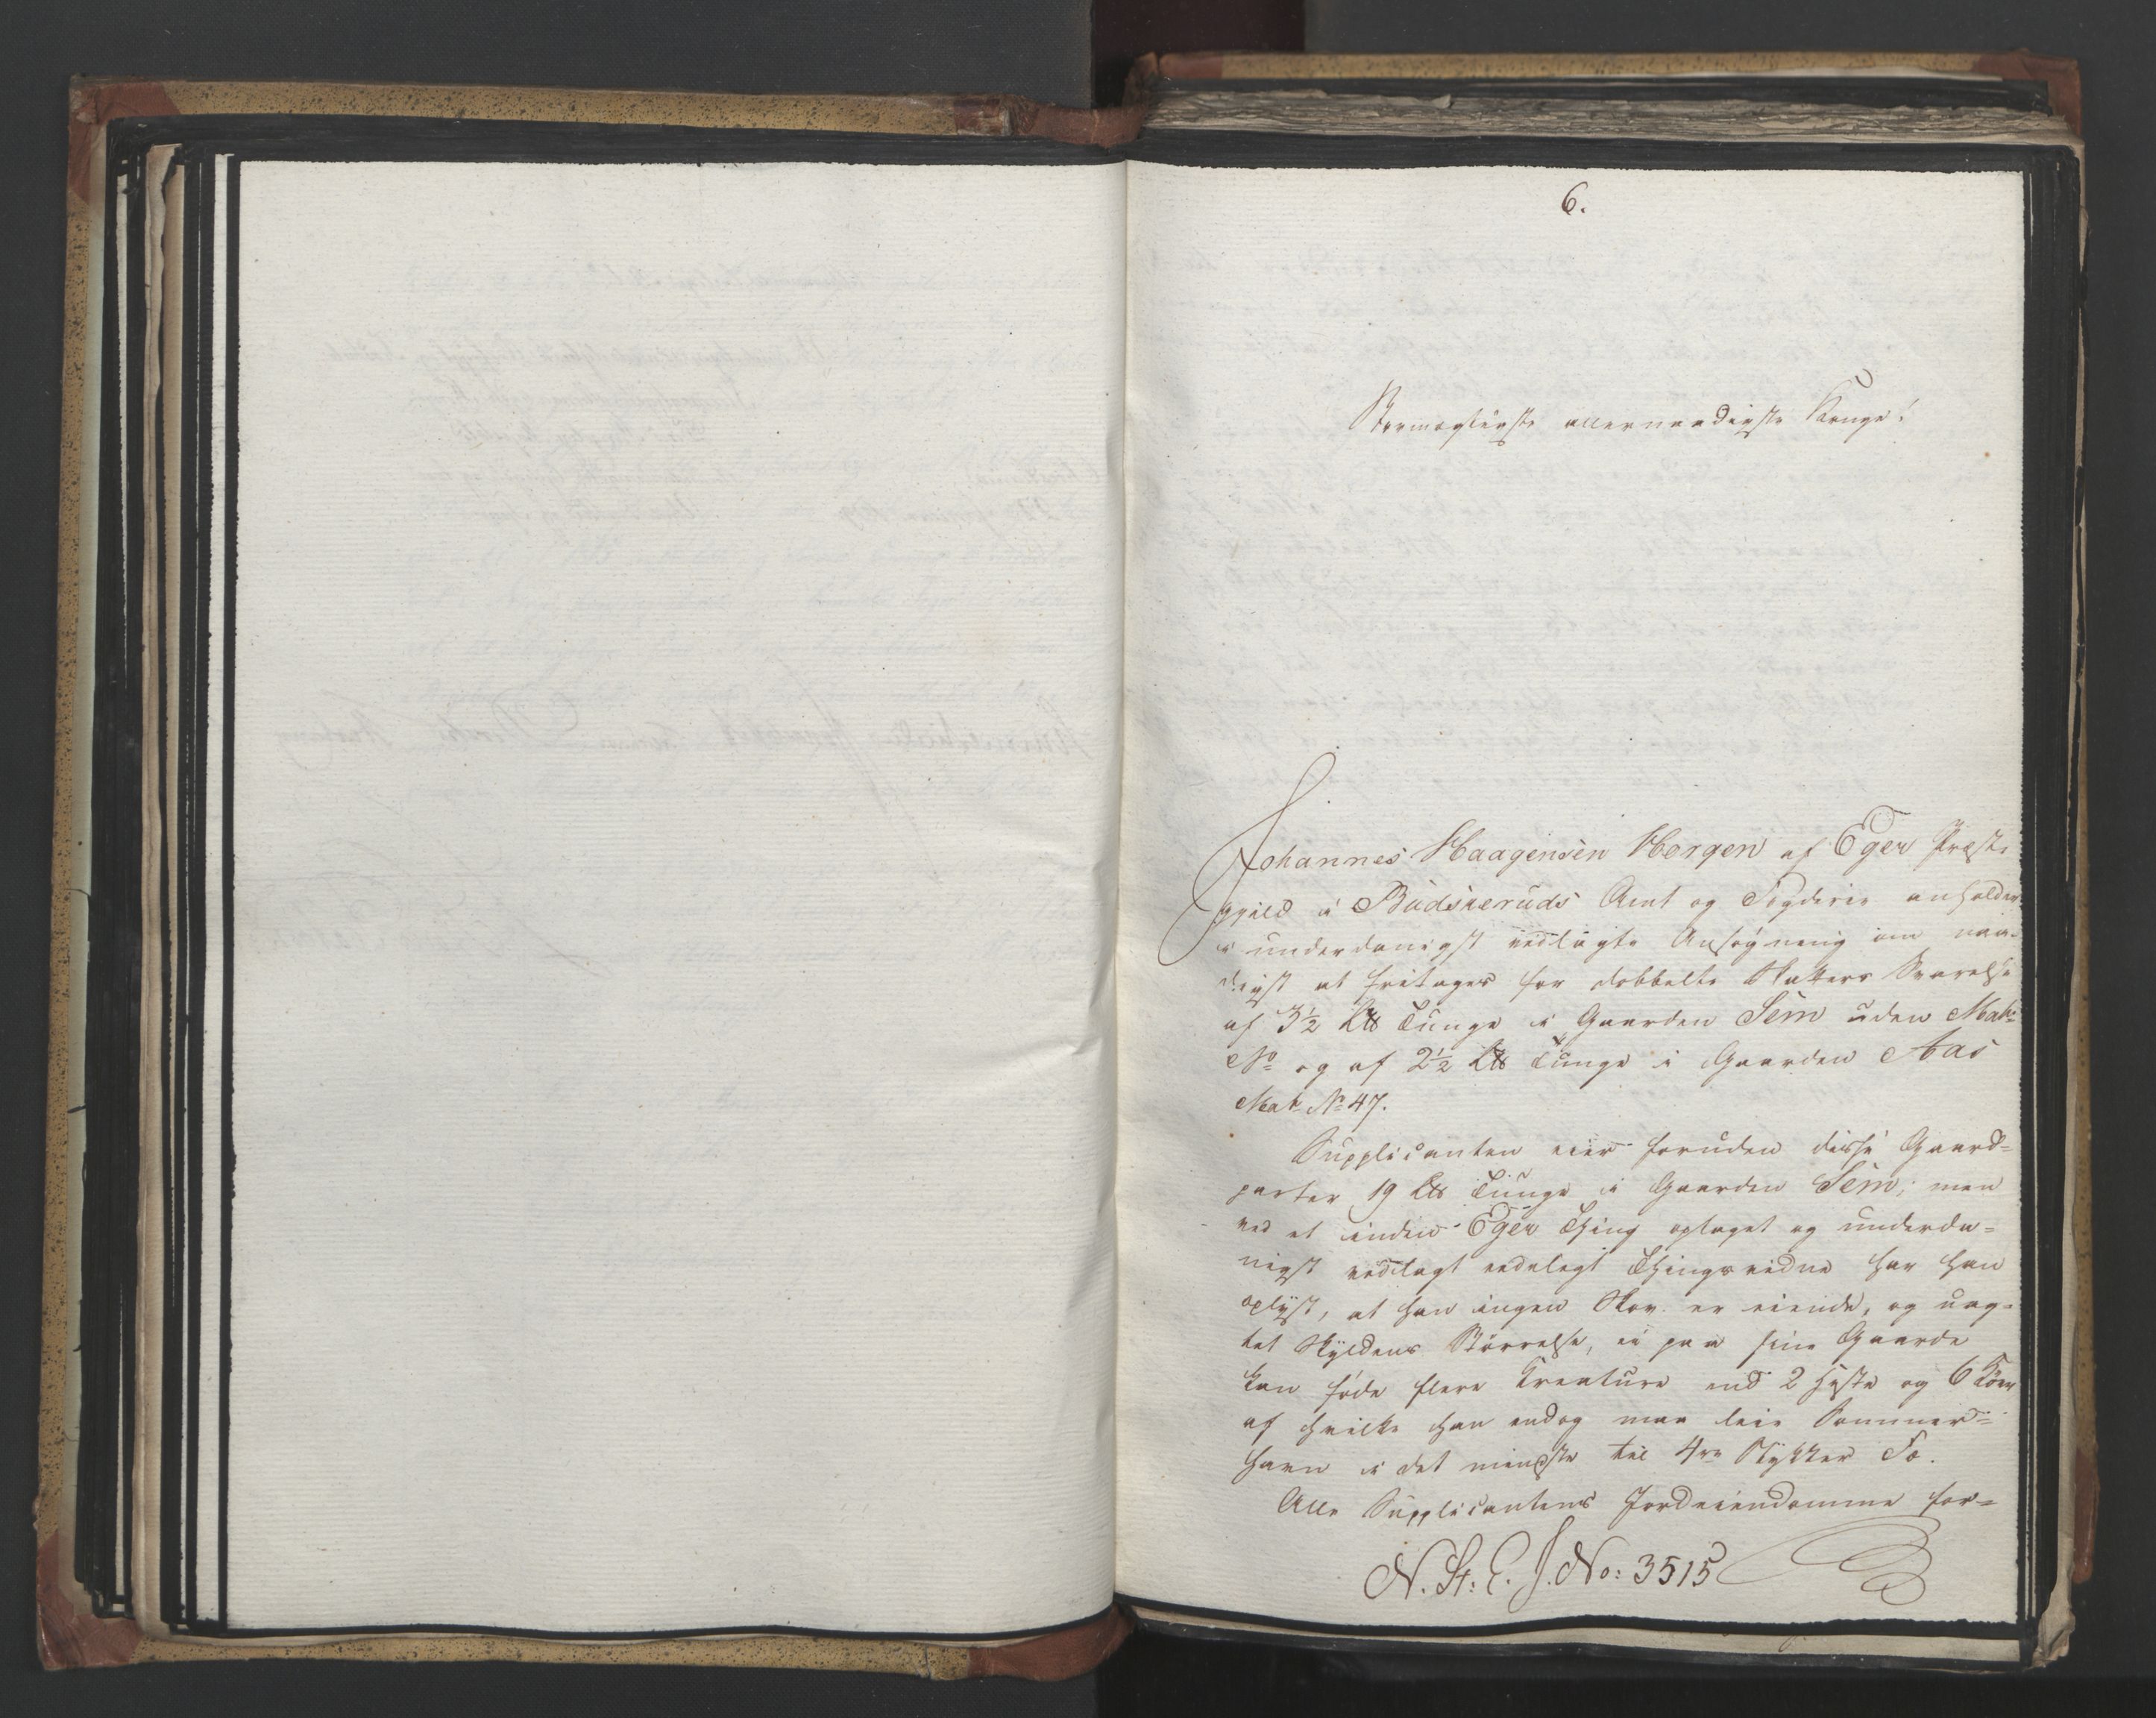 6.
Stormægtigste allernaadigste Konge!
Johannes Haagensen Horgen af Eger Præste
gjeld i Budskeruds Amt og Fogderie anholder
i underdanigst vedlagte Ansøgning om naa-
digst at fritages for dobbelte Skatters Svarelse
af 3½ L℔ Tunge i Gaarden Sem uden Mat:
No og af 2½ L℔ Tunge i Gaarden Aas
Mat No 47.
Supplicanten eier foruden disse Gaard=
parter 19 L℔ Tunge i Gaarden Sem; men
ved et inden Eger Thing optaget og underda=
nigst vedlagt Thingsvidne har han
oplyst, at han ingen Skov er eiende, og uag=
tet Skyldens Størrelse, ei paa sine Gaarde
kan føde flere Creature end 2 Heste og 6 Køer
af hvilke han endog maa leie Sommer=
havn i det mindste til 4re Stykker Fæ.
Alle Supplicantens Jordeiendomme for=
N. St. C. J. No: 3515